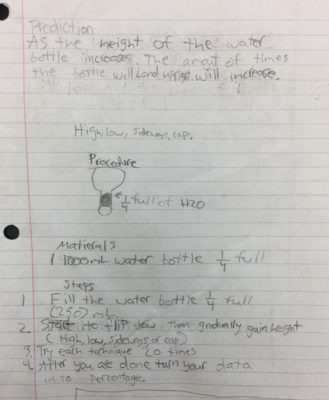 Prediction
As the height of the water
bottle increases. The amat of times
the bottle will land upright will increase.
High, low, sideways, cap.
Procedure
1/4 full of H2O
Matierals
1 1000mL water bottle 1/4 full
Steps
1 Fill the water bottle 1/4 full
(250) mL.
2. Start to flip low than gradually gain height
(High, low, sideways, or cap)
3. Try each technique 20 times
4. After you are done turn your data
into percentage.